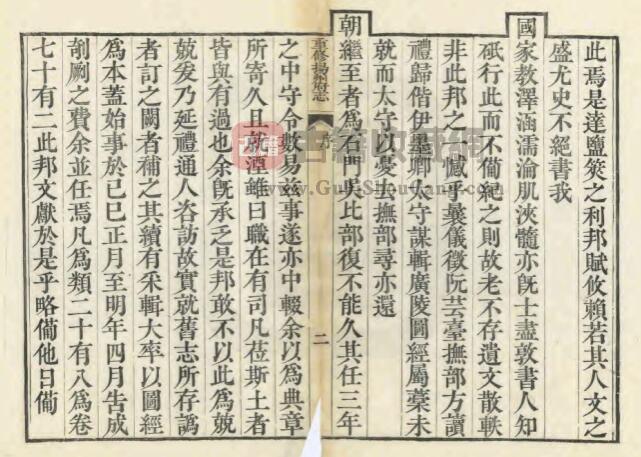 此焉是達鹽筴之利邦賦攸賴若其人文之
盛尤史不絕書我
國家教澤涵濡淪肌浹髓亦旣士盡敦書人知
砥行此而不僃紀之則故老不存遺文散軼
非此邦之一憾乎曩儀徵阮芸臺撫部方讀
禮歸偕伊墨卿太守謀輯廣陵圖經屬藁未
就而太守以憂去撫部尋亦還
朝繼至者爲石門吳比部復不能久其任三年
重修揚州府志
序
二
之中守令數易茲事遂亦中輟余以爲典章
所寄久且就湮雖曰職在有司凡莅斯土者
皆與有過也余旣承乏是邦敢不以此爲兢
兢爰乃延禮通人咨訪故實就舊志所存譌
者訂之闕者補之其續有采輯大率以圖經
爲本蓋始事於己巳正月至明年四月告成
剞劂之費余並任焉凡爲類二十有八爲卷
七十有二此邦文獻於是乎略僃他日僃